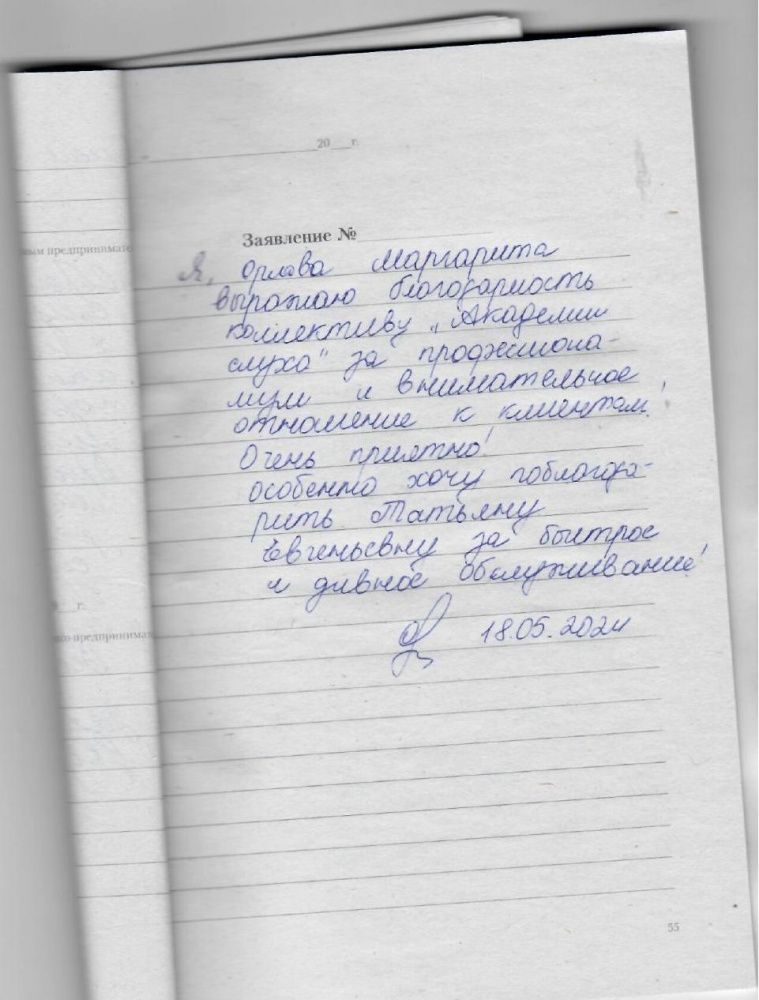 20 г.
Заявление №
вым предпринимате
Я, Орлова Маргарита
выражаю благодарность
коллективу „Академии
слуха" за професиона-
лизм и внимательное
отношение к клиентам!
Очень приятно!
Особенно хочу поблагода-
рить Татьяну
Евгеньевну за быстрое
и дивное обслуживание!
г.
предпринимат
18.05.2024
55